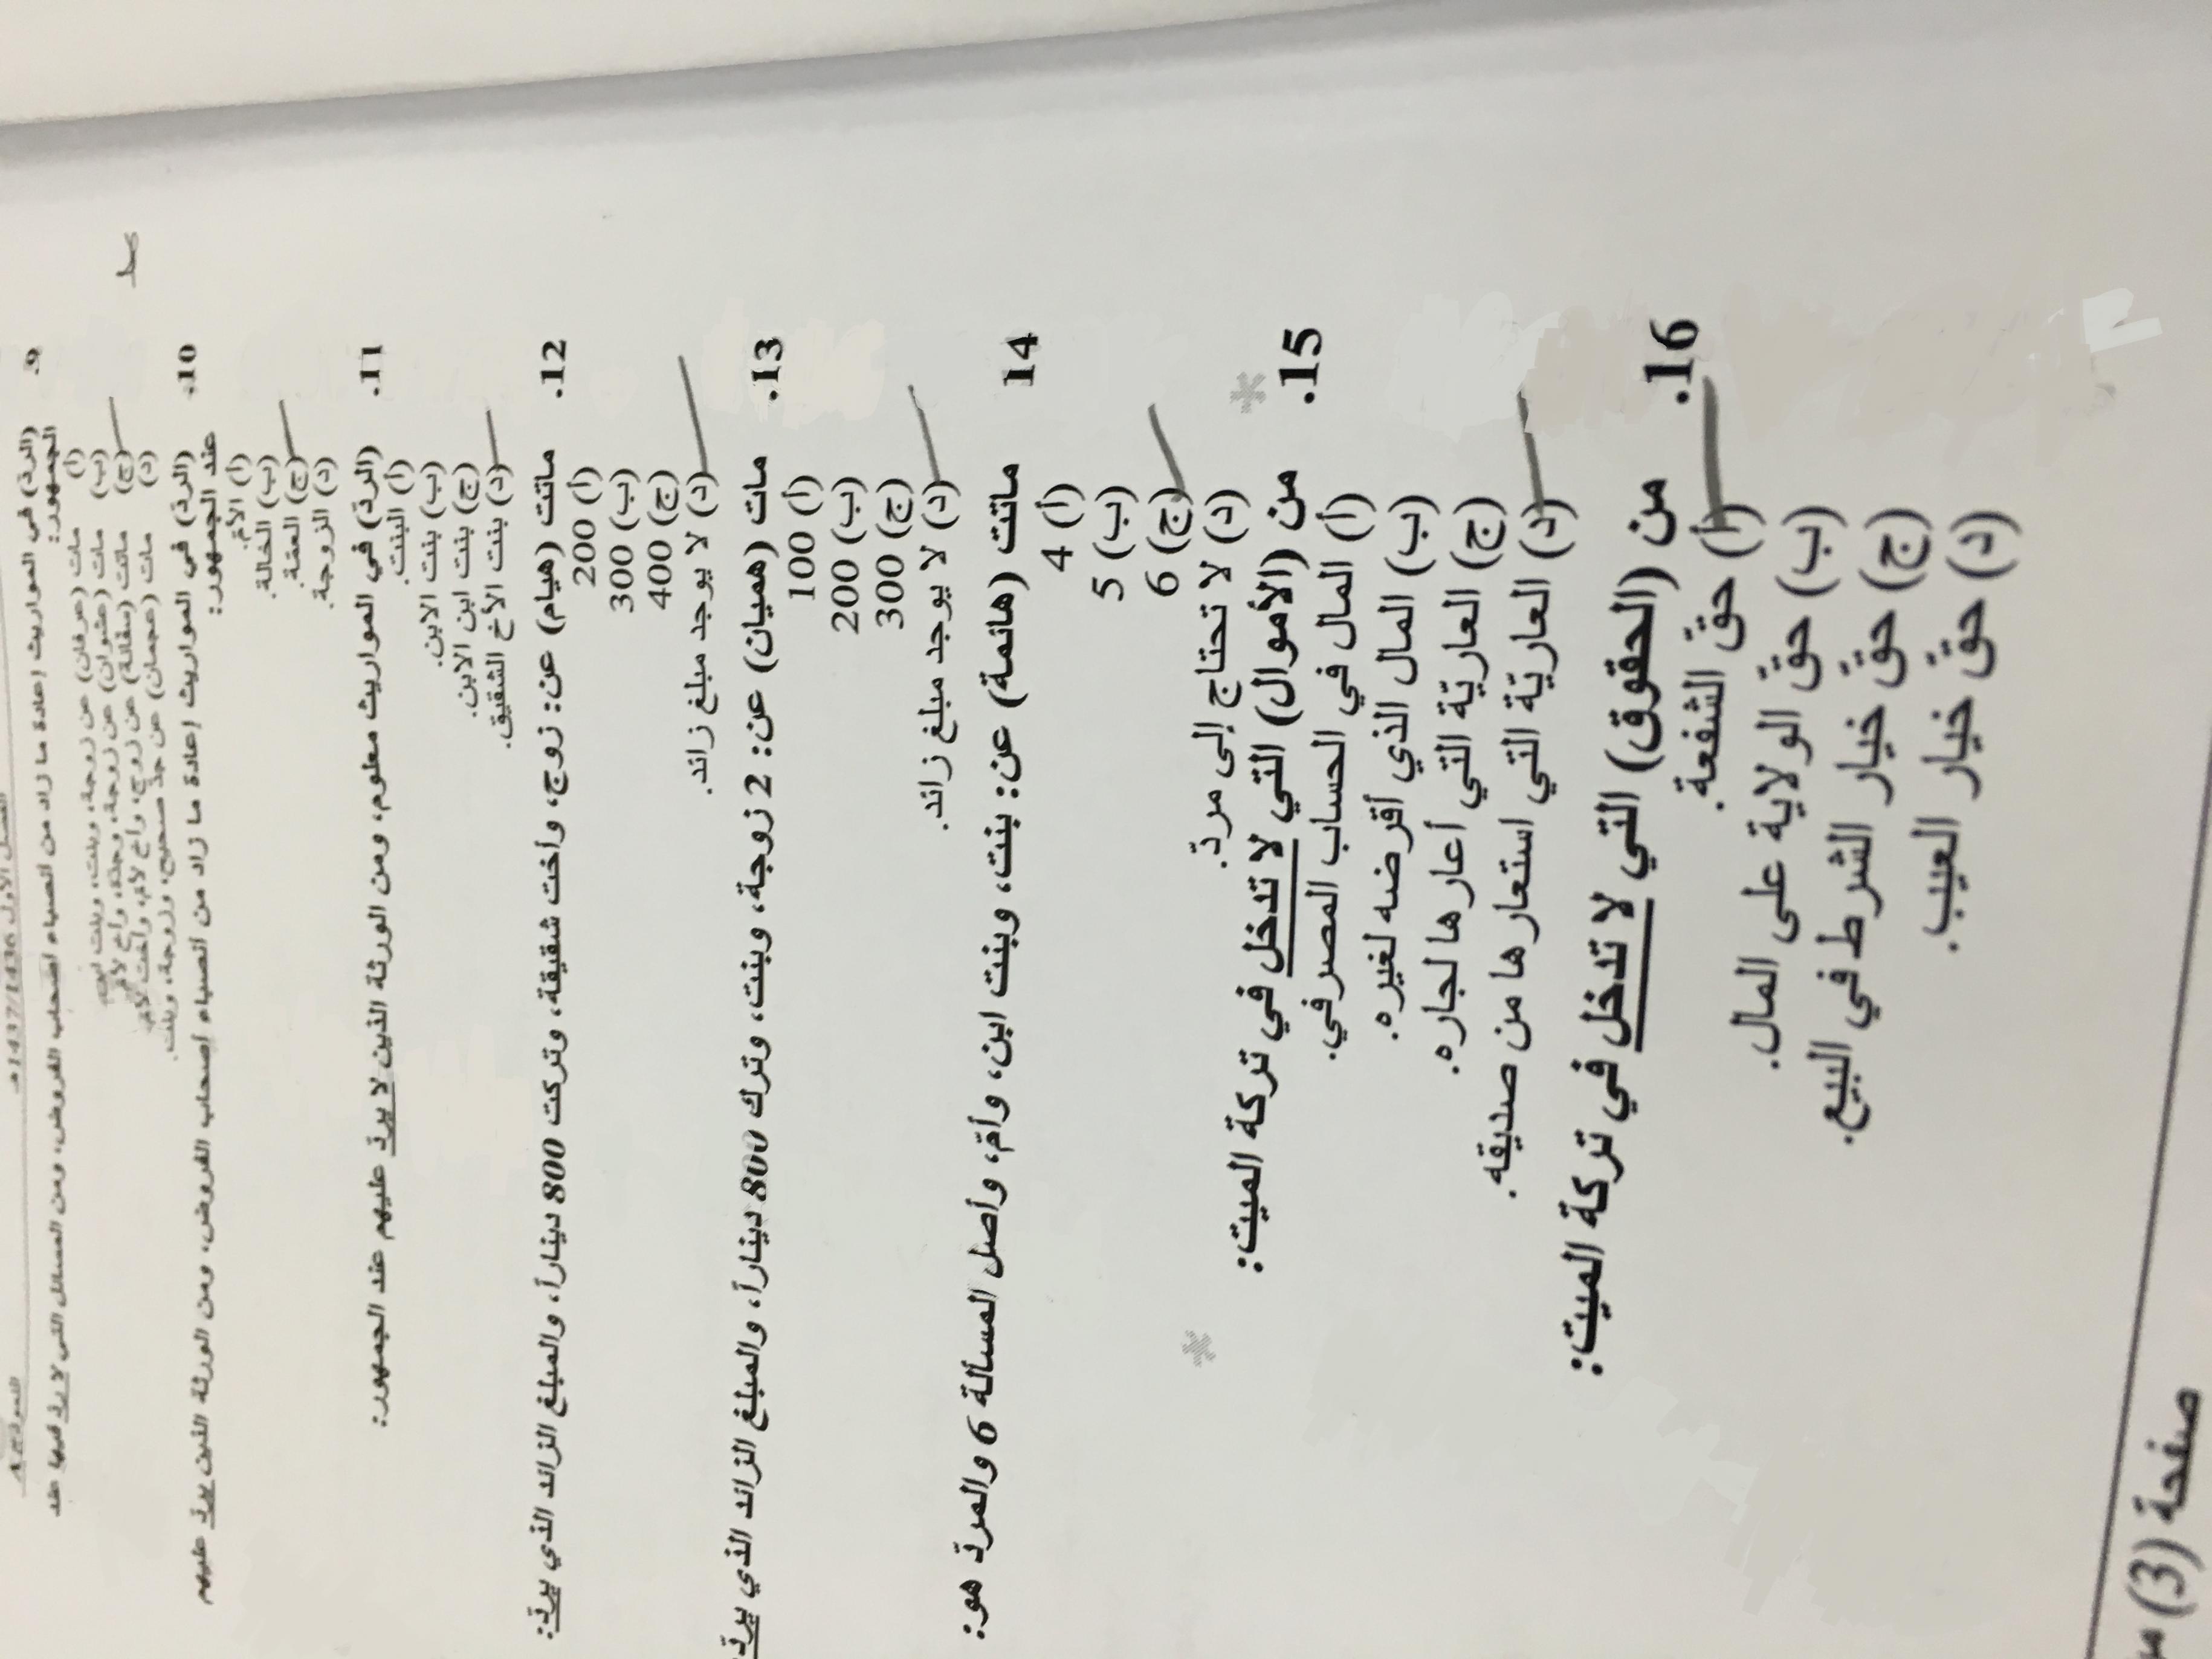 الفصل الأول 1437/1436هـ
9. (الردّ) في المواريث إعادة ما زاد من أنصباء أصحاب الفروض، ومن المسائل التي لا ردّ فيها عند
الجمهور:
(أ) مات (عرفان) عن زوجة، وبنت، وبنت ابن.
(ب) مات (عشوان) عن زوجة، وجدّة، وأخ لأمّ.
(ج) ماتت عن زوج، وأخ لأمّ، وأخت لأمّ.
(د) مات (عجمان) عن جدّ صحيح، وزوجة، وبنت.
10. (الردّ) في المواريث إعادة ما زاد من أنصباء أصحاب الفروض، ومن الورثة الذين يردّ عليهم
عند الجمهور:
(أ) الأمّ.
(ب) الخالة.
(ج) العمّة.
(د) الزوجة.
11. (الردّ) في المواريث معلوم، ومن الورثة الذين لا يردّ عليهم عند الجمهور:
(أ) البنت.
(ب) بنت الابن.
(ج) بنت ابن الابن.
(د) بنت الأخ الشقيق.
12. ماتت (هيام) عن: زوج، وأخت شقيقة، وتركت 800 ديناراً، والمبلغ الزائد الذي يردّ:
(أ) 200
(ب) 300
(ج) 400
(د) لا يوجد مبلغ زائد.
13. مات (هميان) عن: 2 زوجة، وبنت، وترك 800 ديناراً، والمبلغ الزائد الذي يردّ
(أ) 100
(ب) 200
(ج) 300
(د) لا يوجد مبلغ زائد.
14 ماتت (هانمة) عن: بنت، وبنت ابن، وأمّ، وأصل المسألة 6 والمردّ هو:
(أ) 4
(ب) 5
(ج) 6
(د) لا تحتاج إلى مردّ.
15. من (الأموال) التي لا تدخل في تركة الميت:
(أ) المال في الحساب المصرفي.
(ب) المال الذي أقرضه لغيره.
(ج) العاريّة التي أعارها لجاره.
(د) العاريّة التي استعارها من صديقه.
16. من (الحقوق) التي لا تدخل في تركة الميت:
(أ) حقّ الشفعة.
(ب) حقّ الولاية على المال.
(ج) حقّ خيار الشرط في البيع.
(د) حقّ خيار العيب.
صفحة (3) من